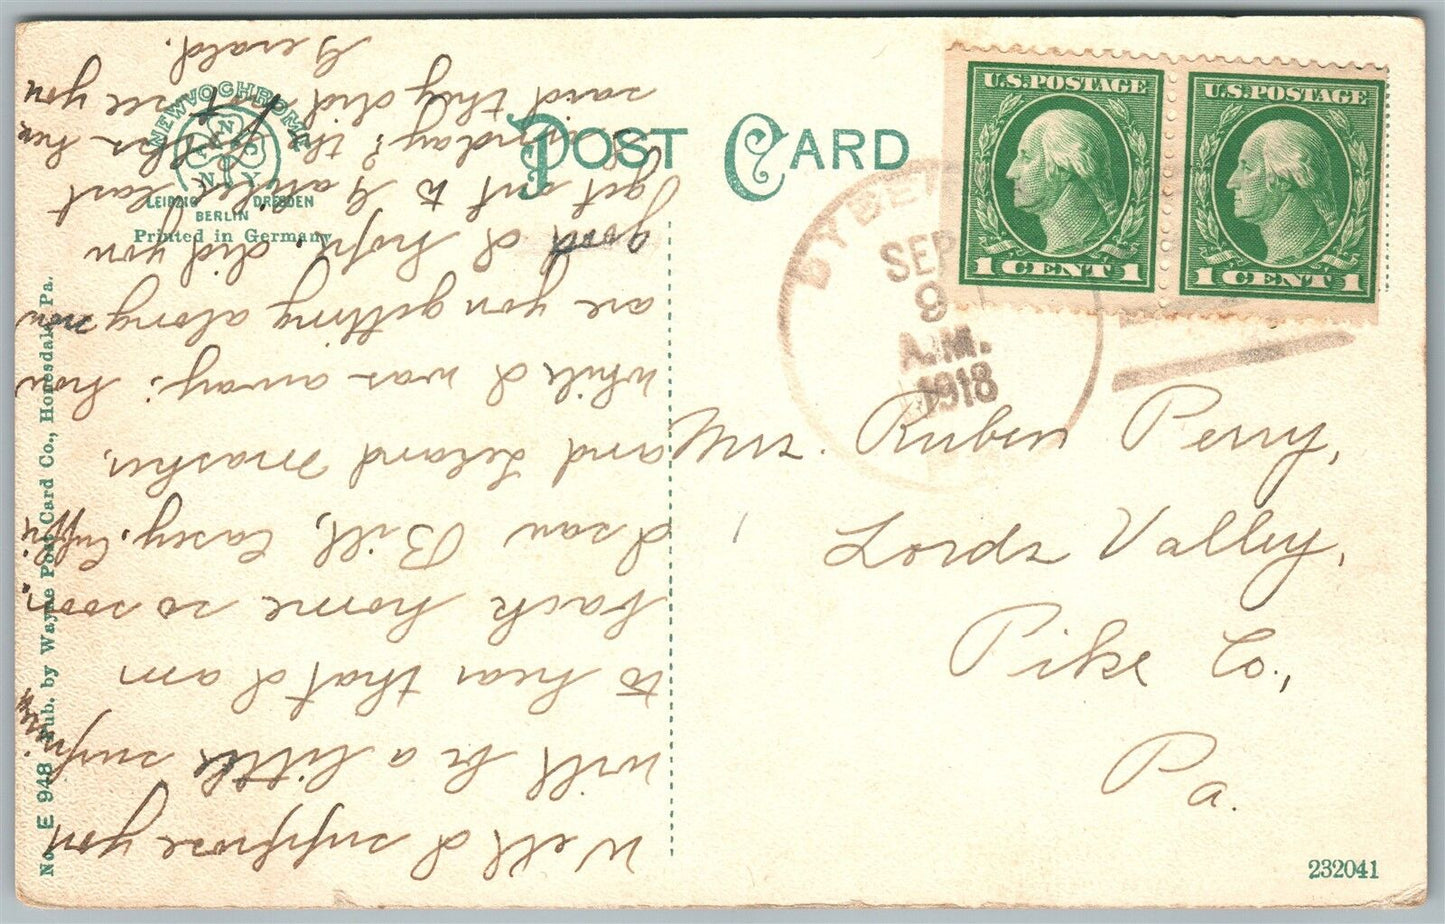 POST CARD
U.S. POSTAGE
1 CENT 1
U.S. POSTAGE
1 CENT 1
SEP
9
A.M.
1918
Mr. Ruben Perry,
Lords Valley,
Pike Co.,
Pa.
232041
NEWVOCHROME
LEIPZIG DRESDEN
BERLIN
Printed in Germany
No. E 948 Pub. by Wayne Post Card Co., Honesdale, Pa.
Well I suppose you
will be a little
to hear that I am
back home so soon.
I saw Bill, Casey,
and Leland
while I was away. how
are you getting along now
good I hope. did you
get out to last
said they did not see you
Gerald.